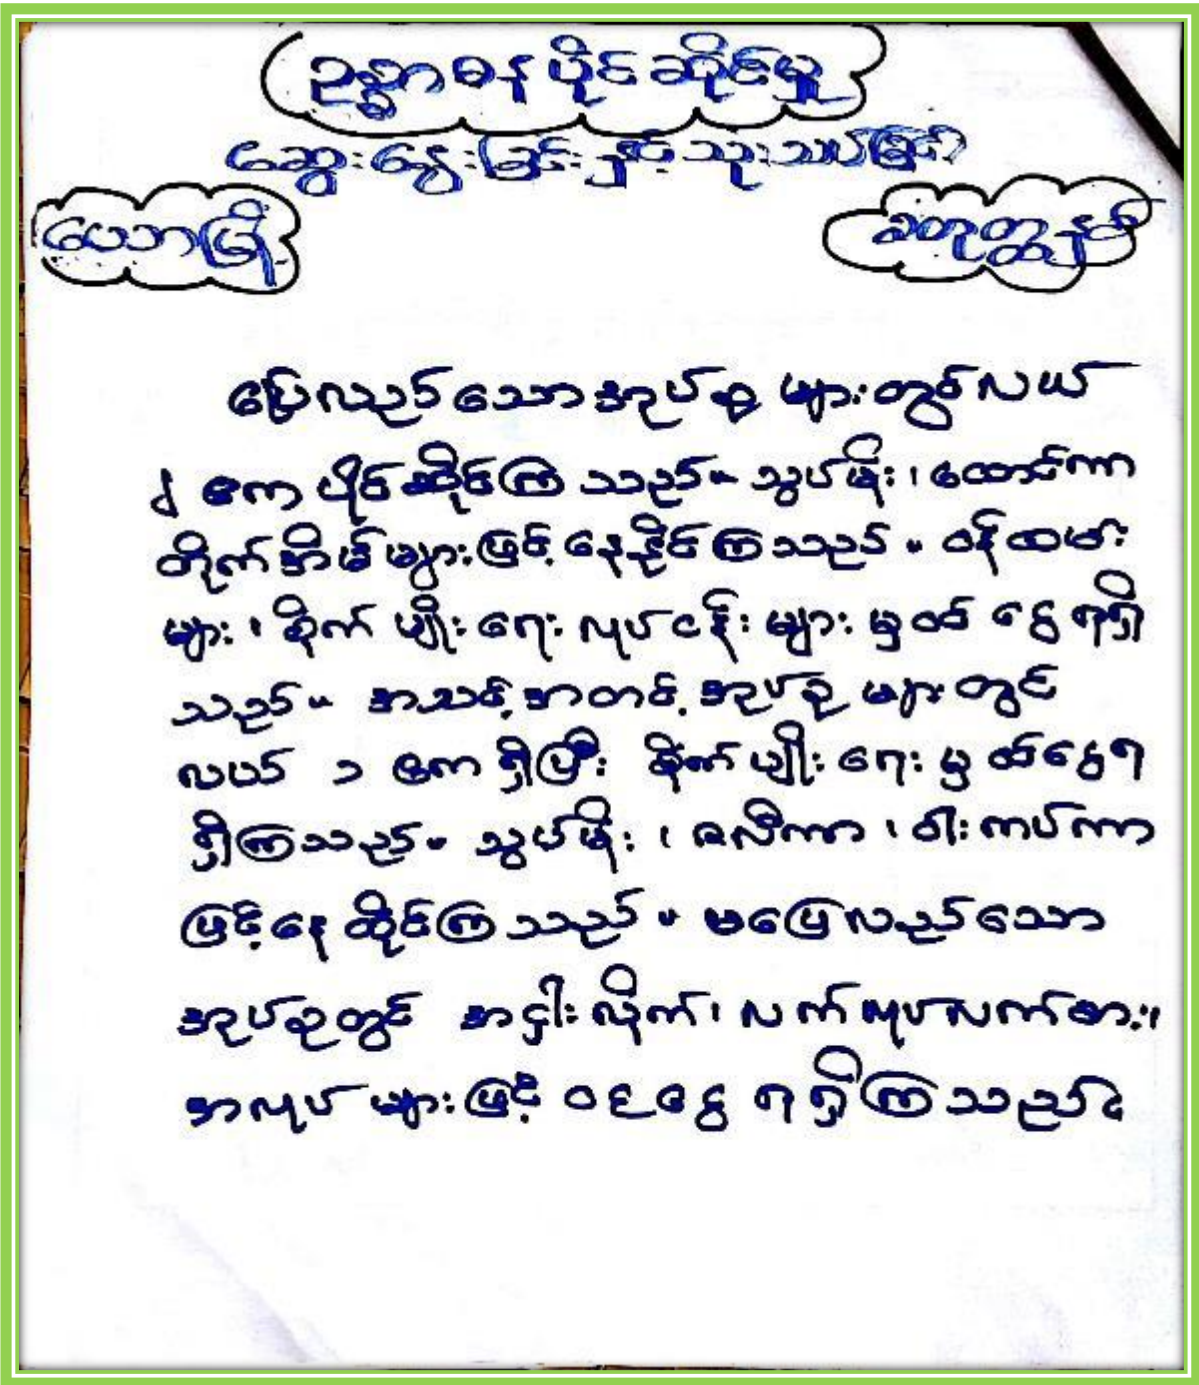 ဥစ္စာဓနပိုင်ဆိုင်မှု
ဆွေးနွေးခြင်းနှင့်သုံးသပ်ခြင်း
ပေါ်ဘမြို့ စတုတ္ထနှစ်
ပြေလည်သောအုပ်စုများတွင်လယ်
၂ ဧက ပိုင်ဆိုင်ကြသည်။ သွပ်မိုး၊ ထောင်ကာ
တိုက်အိမ်များဖြင့်နေနိုင်ကြသည်။ ဝန်ထမ်း
များ၊ စိုက်ပျိုးရေးလုပ်ငန်းများမှဝင်ငွေရရှိ
သည်။ အသင့်အတင့်အုပ်စုများတွင်
လယ် ၁ ဧကရှိပြီး စိုက်ပျိုးရေးမှဝင်ငွေရ
ရှိကြသည်။ သွပ်မိုး၊ ဇလီကာ၊ ဝါးကပ်ကာ
ဖြင့်နေထိုင်ကြသည်။ မပြေလည်သော
အုပ်စုတွင် အငှါးလိုက်၊ လက်လုပ်လက်စား၊
အလုပ်များဖြင့် ဝင်ငွေရရှိကြသည်။